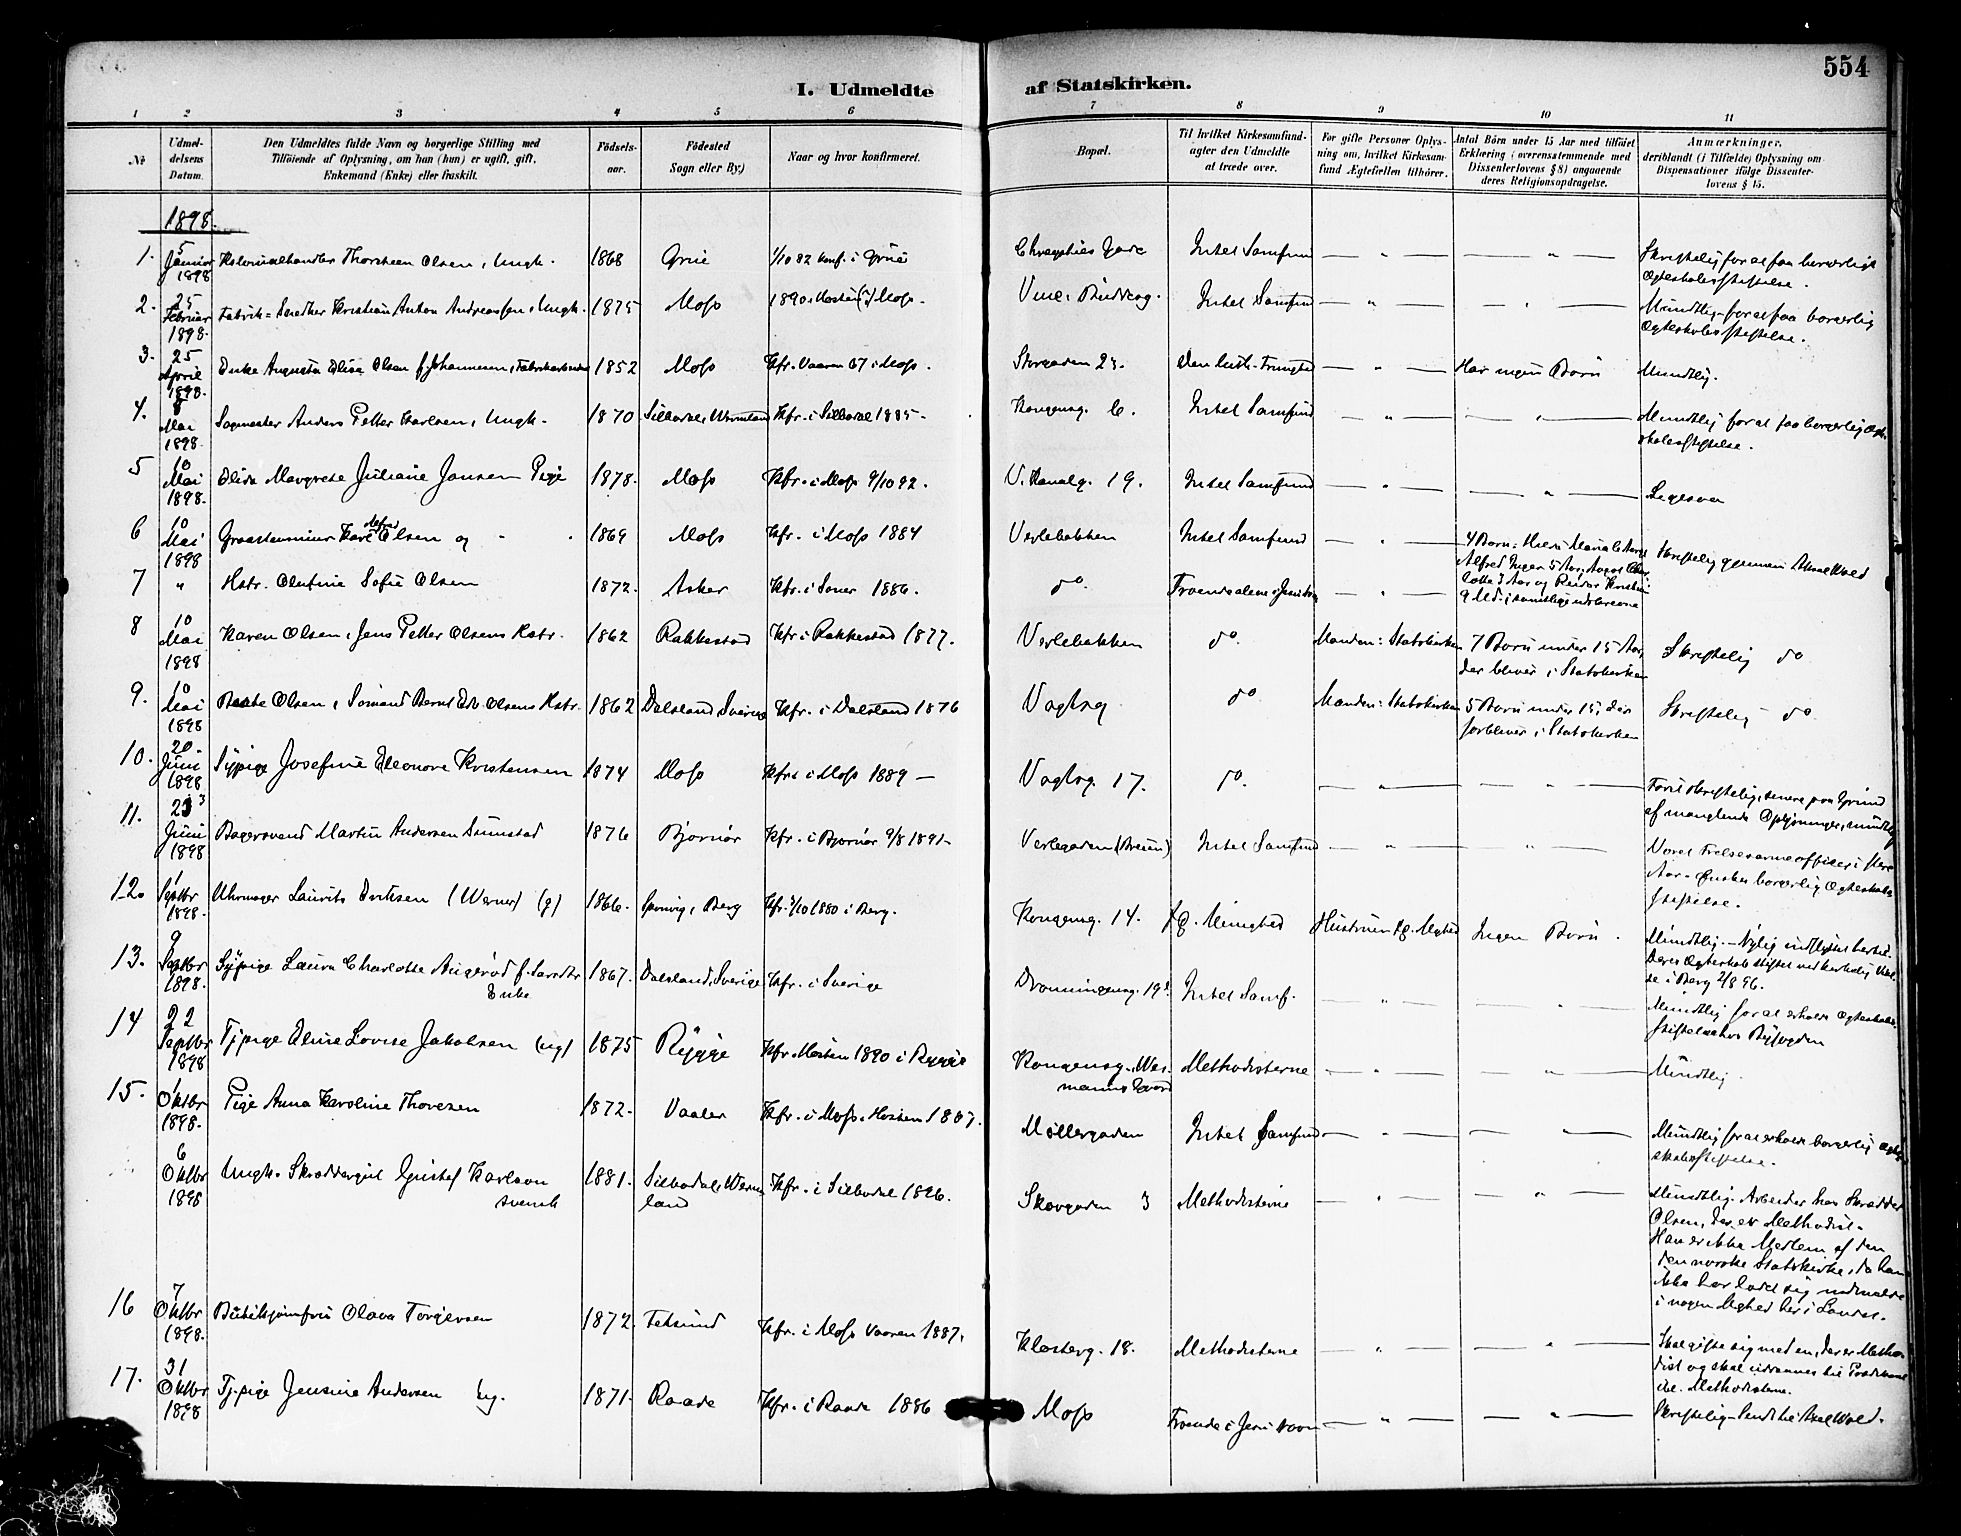 554
I. Udmeldte af Statskirken.
1 2 3 4 5 6 7 8 9 10 11
№
Udmel-
delsens
Datum.
Den Udmeldtes fulde Navn og borgerlige Stilling med
Tilføiende af Oplysning, om han (hun) er ugift, gift,
Enkemand (Enke) eller fraskilt.
Fødsels-
aar.
Fødested
Sogn eller By.)
Naar og hvor konfirmeret.
Bopæl.
Til hvilket Kirkesamfund-
agter den Udmeldte
at træde over.
For gifte Personer Oplys-
ning om, hvilket Kirkesam-
fund Ægtefællen tilhører.
Antal Børn under 15 Aar med tilføiet
Erklæring (overensstemmende med
Dissenterlovens § 8) angaaende
deres Religionsopdragelse.
Anmærkninger,
deriblandt (i Tilfælde) Oplysning om
Dispensationer ifølge Dissenter-
lovens § 15.
1898.
1. 5 Januar 1898 Kolonialhandler Thorsteen Olsen, Ungk. 1868 Grue 1/10 82 konf. i Grue Intet Samfund — " — — " —
Skriftelig for at faa borgerligt
Ægteskabsstiftelse.
2. 25 Februar 1898. Fabrik= Kristian Anton Andreassen, Ungk. 1875 Moss 1890 Høsten (?) Moss. Intet Samfund — " — — " —
Mundtlig - for at faa borgerlig
Ægteskabsstiftelse.
3. 25 April 1898. Enke Augusta Elise Olsen f. Johannesen, 1852 Moss Kfr. Vaaren 67 i Moss. Storgaden 23. Den luth. Frimenighed — " — Har ingen Børn Mundtlig.
4. 8 Mai 1898. Sagmester Anders Petter Karlsen, Ungk. 1870 Silbodal, Wermland Kfr. i Silbodal 1885. Kongensg. 6. Intet Samfund — " — — " —
Mundtlig for at faa borgerlig Ægte-
skabsstiftelse.
5 10 Mai 1898. Elida Margrete Juliane Jansen Pige 1878. Moss Kfr. i Moss 9/10 92. V. Kanalg. 19. Intet Samfund — " — — " —
6 10 Mai 1898 Karl Alfred Olsen og 1869 Moss Kfr. i Moss 1884 Verlebakken Intet Samfund — " —
4 Børn: Maria 6 Aar,
Alfred Inger 5 Aar,
lotte 3 Aar og Reidar Kristian
9 Md. i samtlige
Skriftelig gjennem Axel Wold
7 " Hstr. Olufine Sofie Olsen 1872. Asker Kfr. i Soner 1886. do. Troende alene i Jesu Navn — " —
8 10 Mai 1898 Karen Olsen, Jens Petter Olsens Hstr. 1862 Rakkestad Kfr i Rakkestad 1877. Verlebakken do. Manden: Statskirken
7 Børn under 15 Aar,
der bliver i Statskirken
Skriftelig do
9. 10 Mai 1898 Beate Olsen, Sømand Bernt Edv. Olsens Hstr. 1862 Dalsland, Sverige Kfr. i Dalsland 1876 Vogtsg. do Manden: Statskirken
5 Børn under 15, der
forbliver i Statskirken
Skriftelig do
10. 20. Juni 1898 Sypige Josefine Eleonore Kristensen 1874 Moss Kfr. i Moss 1889 — Vogtsg. 17. do. — " — — " —
Først skriftelig, senere paa Grund
af manglende Oplysninger, mundtlig
11. 23 Juni 1898 Bagersvend Martin Andersen Sumstad 1876 Bjørnør Kfr. i Bjørnør 9/8 1891 — Verlegaden Intet Samfund — " — — " —
Været Frelsesarmeofficer i flere
Aar. Ønsker borgerlig Ægteskabs-
stiftelse.
12. 1 Septbr 1898. Uhrmager Laurits Eriksen (Werner) (g) 1866. Sponvig, Berg Kfr. 3/10 1880 i Berg. Kongensg. 14. Hustruen Ingen Børn.
Mundtlig. - Nylig indflyttet hertil.
Deres Ægteskab stiftet ved kirkelig Viel-
se i Berg 2/8 96.
13. 9 Septbr 1898. Sypige Laura Charlotte Augerød Enke 1867. Dalsland, Sverige Kfr. i Sverige Dronningensg. 19 Intet Samf. — " — — " —
Mundtlig for at erholde Ægteskabs-
stiftelse hos Byfogden
14 22 Septbr 1898 Tj.pige Eline Lovise Jakobsen (ug) 1875 Rygge Kfr. Høsten 1890 i Rygge Kongensg. Wes-
manns Gaard Methodisterne — " — — " — Mundtlig
15. 1 Oktbr 1898. Pige Anna Karoline Thoresen 1872. Vaaler Kfr. i Moss. Høsten 1887. Møllergaden Intet Samfund — " — — " —
Mundtlig for at erholde borgerlig Ægte-
skabsstiftelse.
6 Oktbr 1898 Ungk. Skræddergut Gustaf Karlson svensk 1881. Silbodal, Werm-
land Kfr. i Silbodal 1896. Skovgaden 3 Methodisterne — " — — " —
Mundtlig. Arbeider hos Skrædder
Olsen, der er Methodist.
Han er ikke Medlem af den
den norske Statskirke, da han
ikke har ladet sig indmelde
i nogen Meghed her i Landet.
16 7 Oktbr 1898. Butikjomfru Olava Torgersen 1872. Feksund Kfr. i Moss Vaaren 1887. Klosterg. 18. Methodisterne — " — — " —
Skal gifte sig med en, der er Metho-
dist og skal uddannes til Prædikant
Methodisterne.
17. 31 Oktbr 1898 Tj.pige Jensine Andersen ug. 1871. Raade Kfr. i Raade 1886 Moss Troende i Jesu Navn — " — — " — Skriftelig - Sendt til Axel Wold.